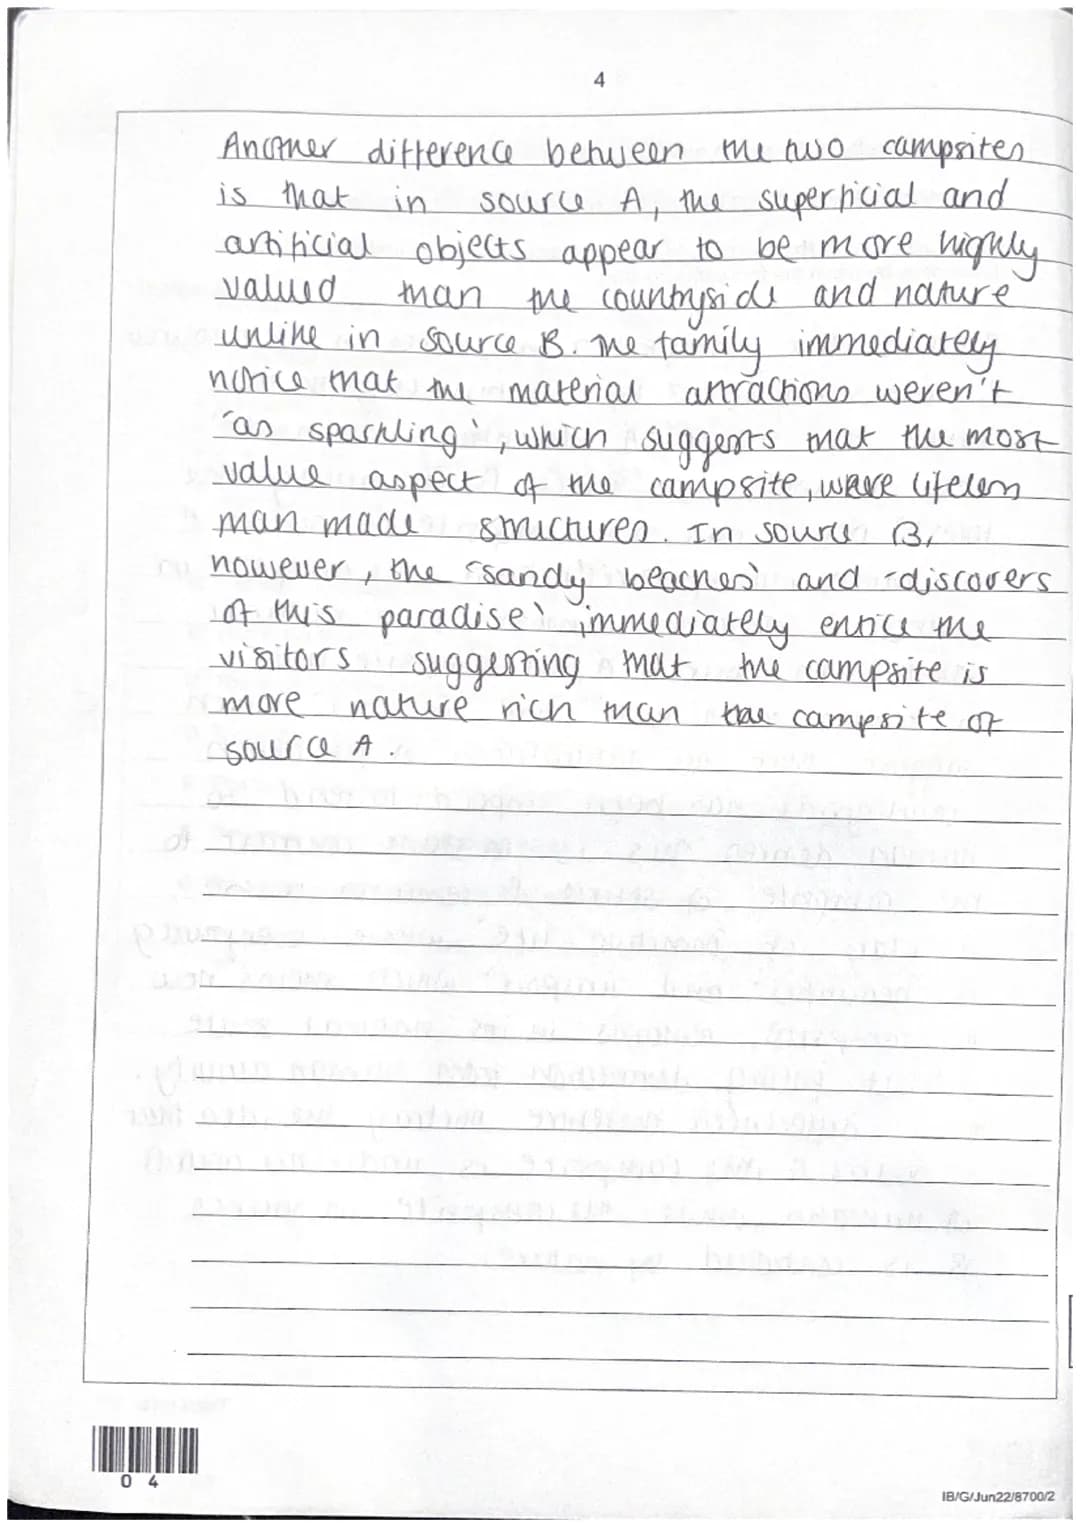 4
Another difference between the two campsites
is that in source A, the superficial and
artificial objects appear to be more highly
valued than the countryside and nature
unlike in source B. The family immediately
notice that the material attractions weren't
'as sparkling', which suggests that the most
value aspect of the campsite, were lifeless
man made structures. In source B,
however, the 'sandy beaches' and 'discovers
of this paradise' immediately entice the
visitors suggesting that the campsite is
more nature rich than the campsite of
source A.
0 4
IB/G/Jun22/8700/2